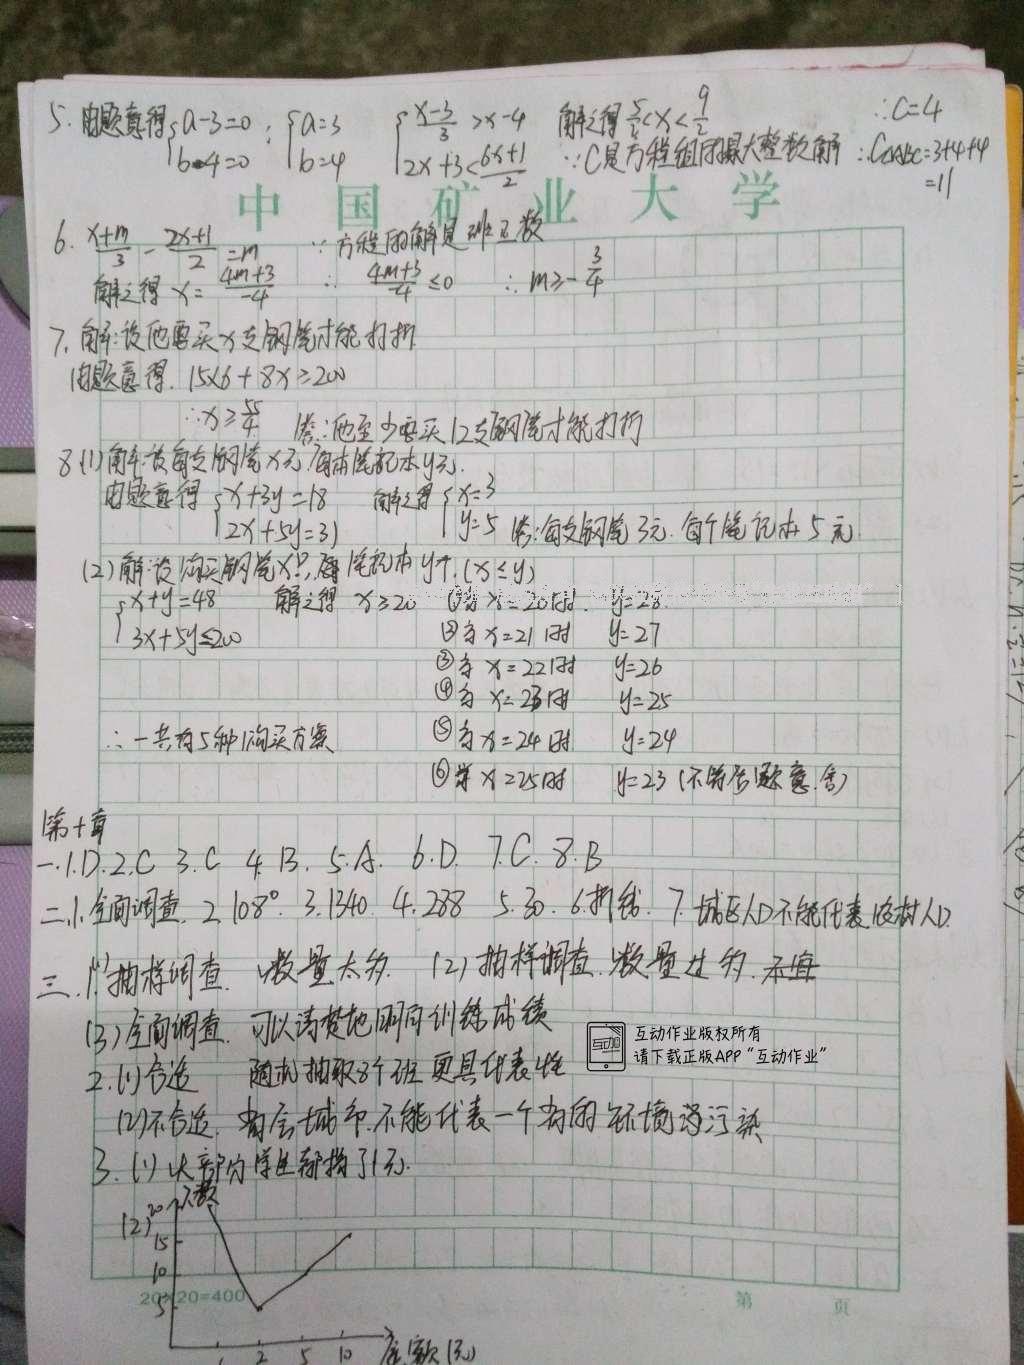 5. 由题意得 { a-3=0 b-4=0 ∴ { a=3 b=4 { (x-3)/3 > x-4 2x+3 < (6x+1)/2 解之得 5/2<x<9/2 ∴C=4
∵C是方程组的最大整数解 ∴C△ABC=3+4+4
=11
中国矿业大学
6. (x+m)/3 - (2x+1)/2 = m ∵方程的解是非正数
解之得 x= (4m+3)/-4 ∴ (4m+3)/-4 ≤0 ∴ m≥-3/4
7. 解:设他要买x支钢笔才能打折
由题意得. 15×6+8x≥200
∴x≥55/4 答:他至少要买12支钢笔才能打折
8.(1)解:设每支钢笔x元,每本笔记本y元.
由题意得 { x+3y=18 2x+5y=31 解之得 { x=3 y=5 答:每支钢笔3元.每个笔记本5元.
(2)解:设购买钢笔x只, 笔记本y个.(x≤y)
{ x+y=48 3x+5y≤200 解之得 x≥20 ①当x=20时. y=28.
②当x=21时 y=27
③当x=22时 y=26
④当x=23时 y=25
∴一共有5种购买方案 ⑤当x=24时 y=24
⑥当x=25时 y=23 (不符合题意.舍)
第十章
一.1.D.2.C 3.C 4.B. 5.A. 6.D. 7.C. 8.B
二.1.全面调查. 2.108°. 3.1340. 4.288 5.30. 6.折线. 7.城区人口不能代表农村人口.
三.1.(1)抽样调查. 数量太多. (2)抽样调查.数量过多.
(3)全面调查. 可以清楚地明白训练成绩
2.(1)合适 随机抽取8个班更具代表性
(2)不合适. 省会城市.不能代表一个省的环境污染
3.(1)大部分学生都捐了1元.
(2) 人数
20
15
10
5
1 2 5 10 金额(元)
20×20=400
第 页
互动作业版权所有
请下载正版APP“互动作业”